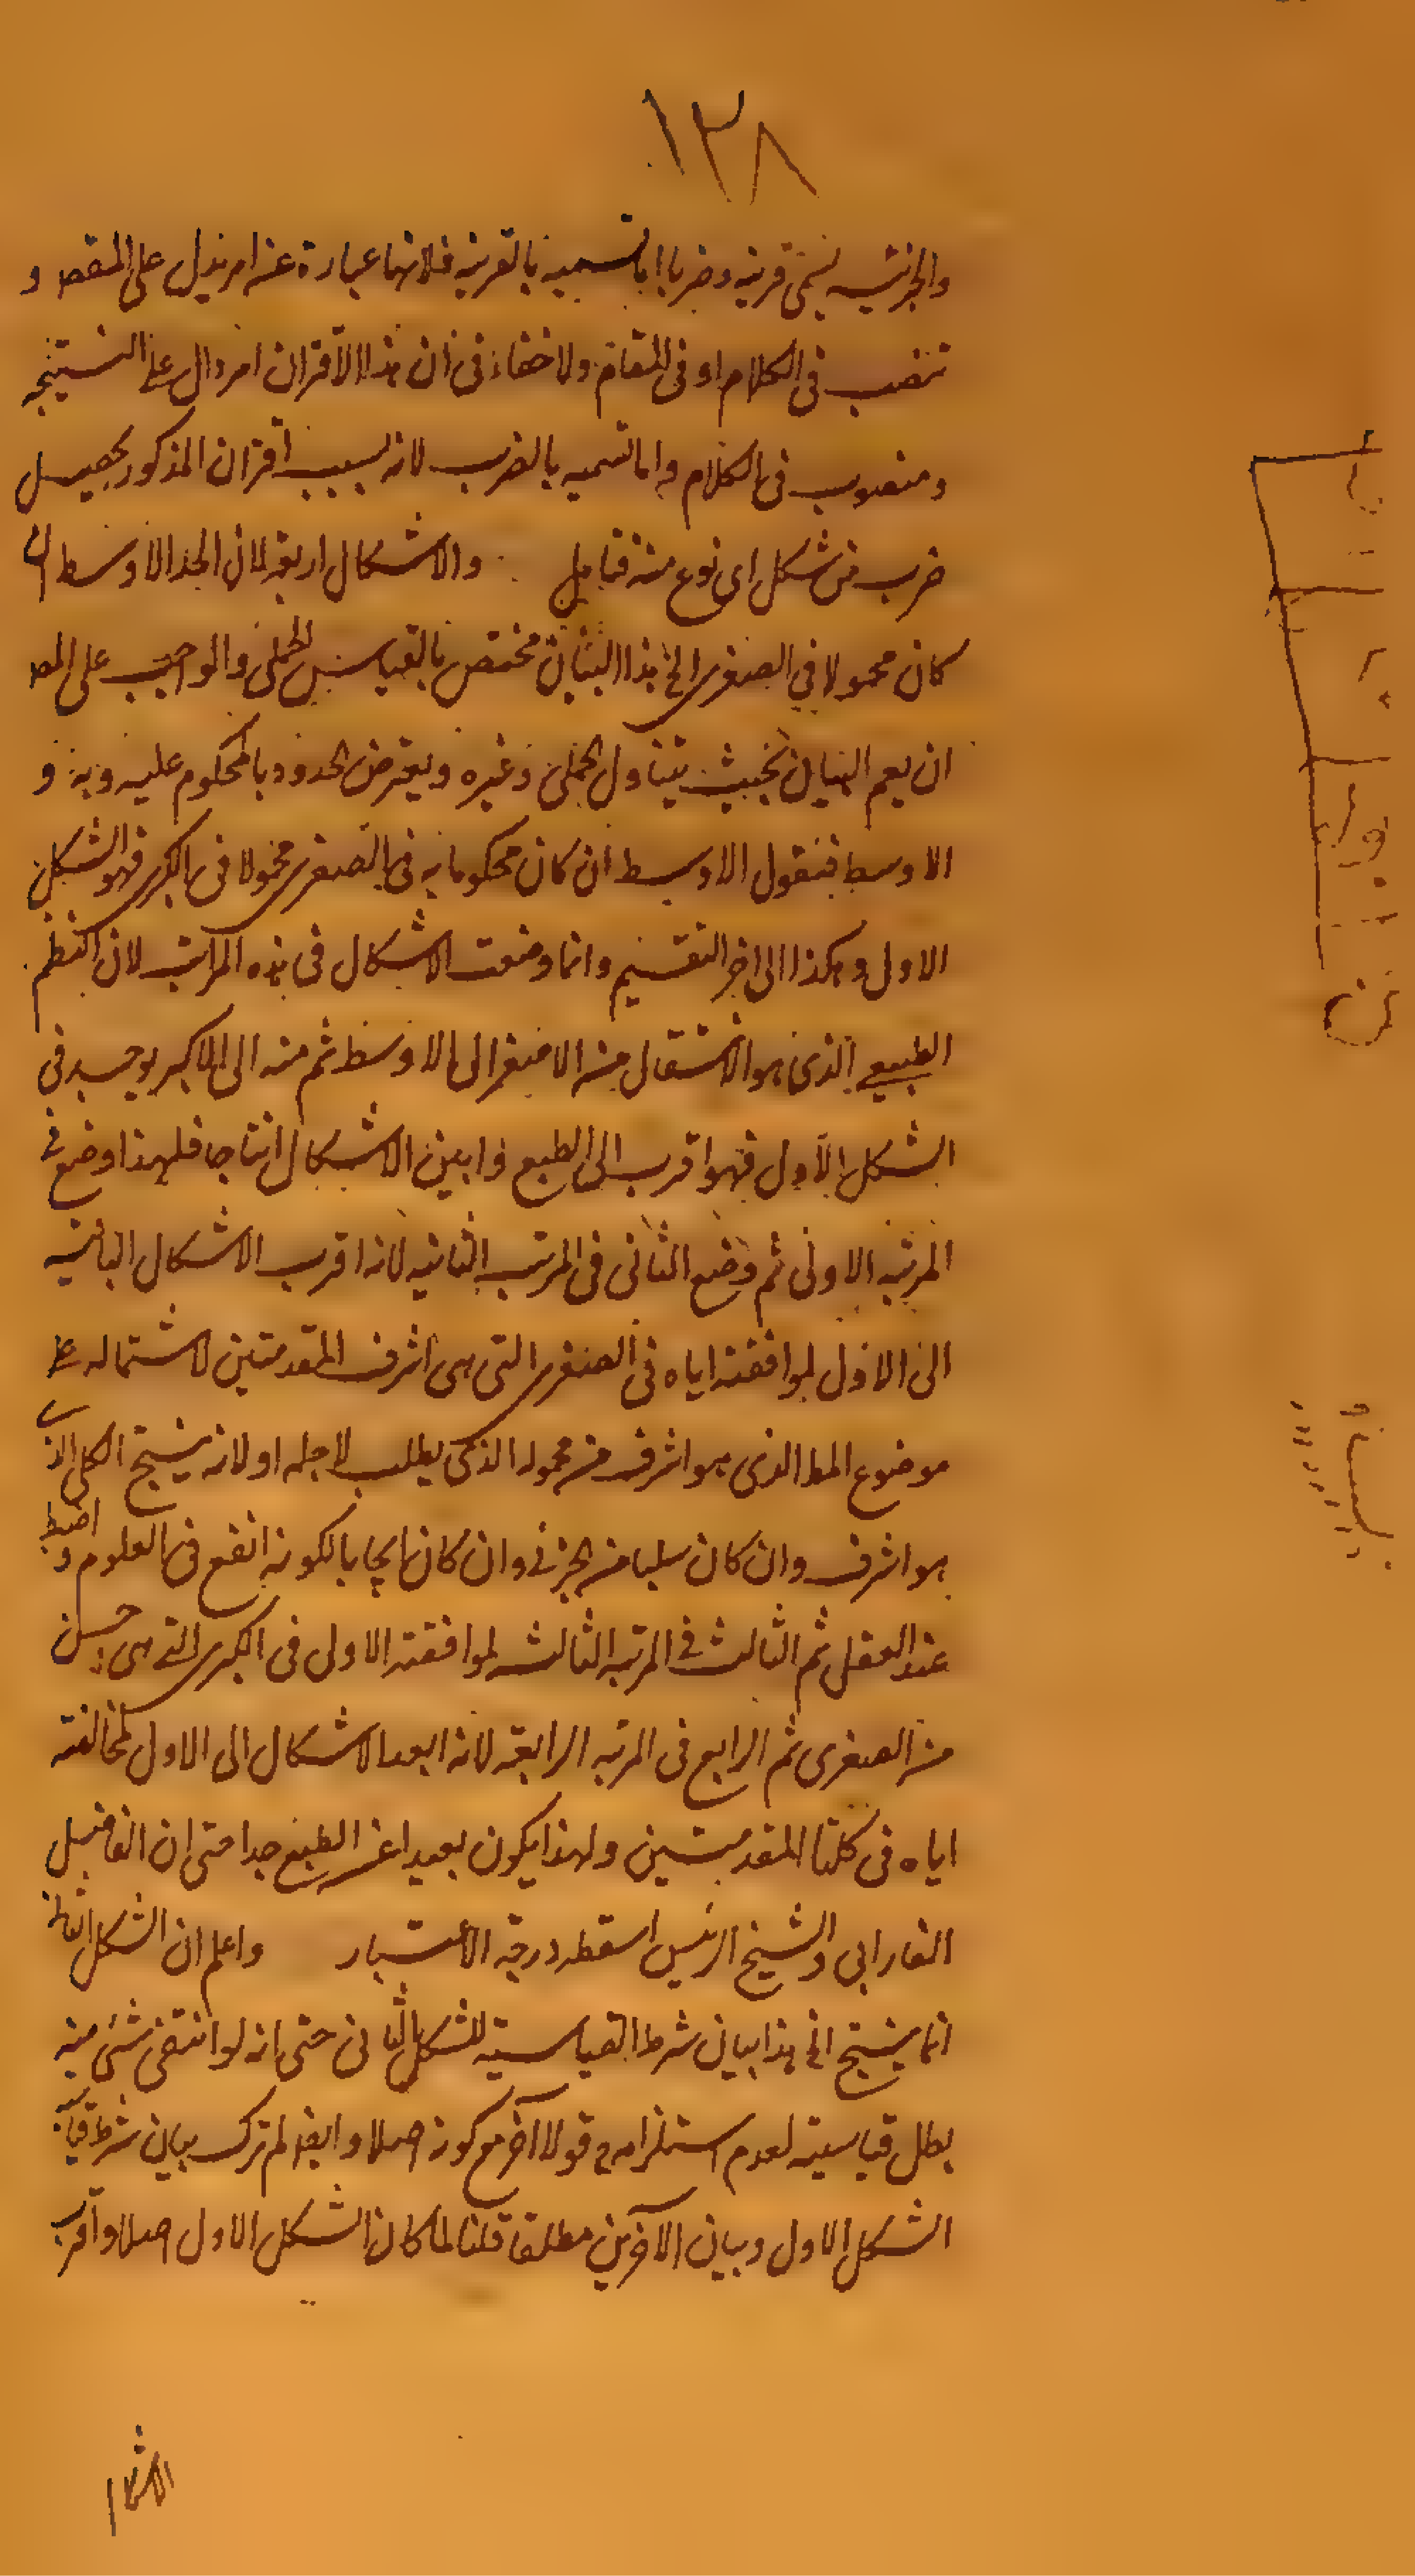 ١٣٨
والجزئية يسمى قرينة وضربا اما تسميه بالقرينه فلانها عبارة عن امر يدل على المقص و
تنصب فى الكلام او فى المقام ولا خفاء فى ان هذا الاقتران امر دال على النتيجه
ومنصوب فى الكلام واما تسميه بالضرب لانه بسبب اقتران المذكور يحصيل
ضرب من شكل اى نوع منه فتامل والاشكال اربعة لان الحد الاوسط ان
كان محمولا فى الصغرى الخ هذا البيان مختص بالقياس الحملى والواجب على المص
ان يعم البيان بحيث يتناول الحملى وغيره ويعترض الحدود بالمحكوم عليه وبه و
الاوسط فنقول الاوسط ان كان محكوما به فى الصغرى محمولا فى الكبرى فهو الشكل
الاول وهكذا الى اخر التقسيم وانما وضعت الاشكال فى هذه المراتب لان النظم
الطبيعى الذى هو الانتقال من الاصغر الى الاوسط ثم منه الى الاكبر يوجد فى
الشكل الاول فهو اقرب الى الطبع وابين الاشكال انتاجا فلهذا وضع فى
المرتبه الاولى ثم وضع الثانى فى المرتبه الثانيه لانه اقرب الاشكال الباقيه
الى الاول لموافقته اياه فى الصغرى التى هى اشرف المقدمتين لاشتماله على
موضوع المط الذى هو اشرف من محموله الذى يطلب لاجله او لانه ينتج الكلى الذى
هو اشرف وان كان سلبا من الجزئى وان كان ايجابا لكونه انفع فى العلوم واضبط
عند العقل ثم الثالث فى المرتبه الثالثه لموافقته الاولى فى الكبرى التى هى اخس
من الصغرى ثم الرابع فى المرتبه الرابعة لانه ابعد الاشكال الى الاول لمخالفته
اياه فى كلتا المقدمتين ولهذا يكون بعيدا عن الطبع جدا حتى ان الفاضل
الفارابى والشيخ الرئيس اسقطه درجة الاعتبار واعلم ان الشكل الثانى
انما ينتج الخ هذا بيان شرط القياسية للشكل الثانى حتى انه لو انتفى شئ منه
بطل قياسيته لعدم استلزامه قولا آخر مع كونه اصلا وايضا لم ترك بيان شرط قياسية
الشكل الاول وبيان الآخرين مطلقا قلنا لما كان الشكل الاول اصلا واقرب